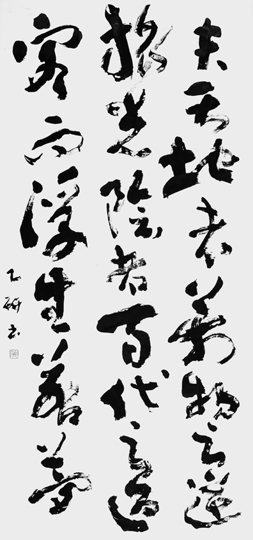 夫天地者萬物之逆
旅光陰者百代之過
客而浮生若夢
書